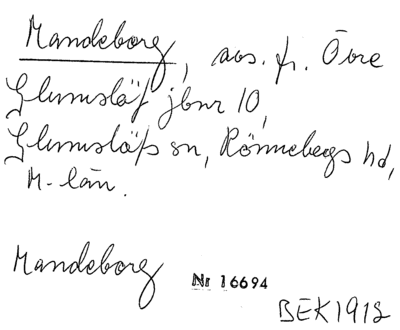 Mandeborg, avs. fr. Övre
Glumslöf jbnr 10,
Glumslöfs sn, Rönnebergs hd,
M-län.
Mandeborg
Nr 16694
BEK1912